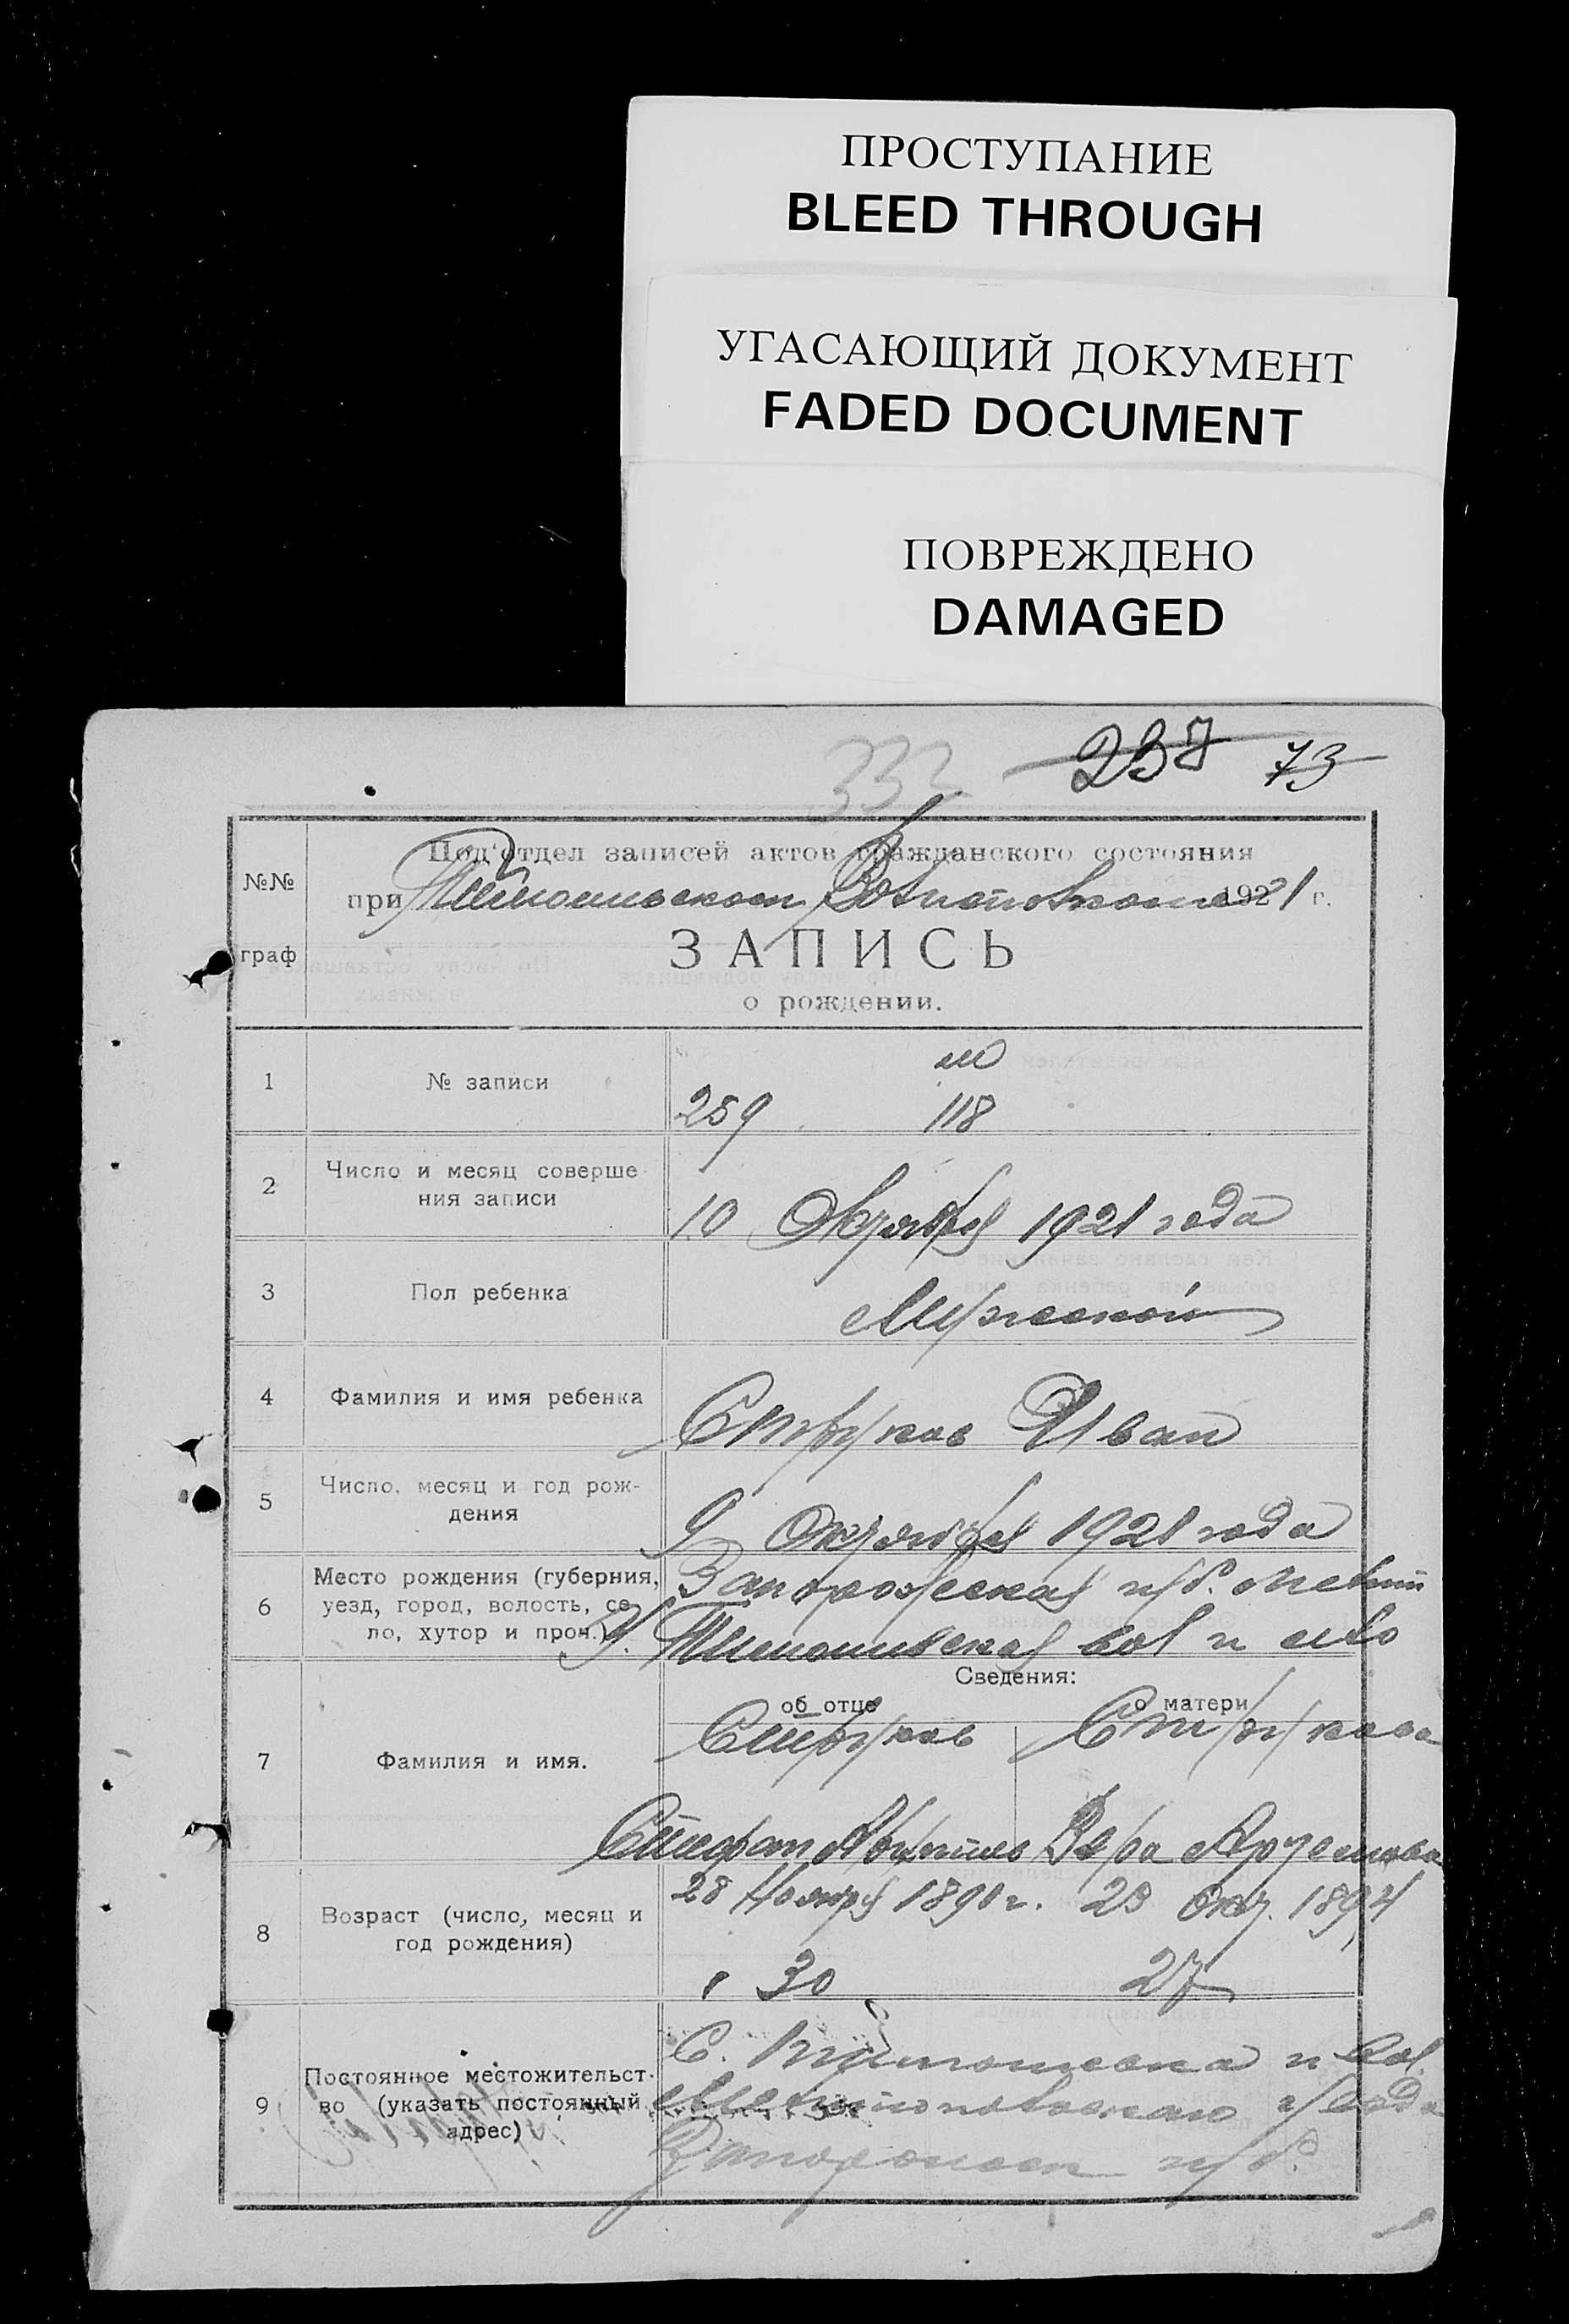 ПРОСТУПАНИЕ
BLEED THROUGH
УГАСАЮЩИЙ ДОКУМЕНТ
FADED DOCUMENT
ПОВРЕЖДЕНО
DAMAGED
332 237 73
№№ граф
Под'отдел записей актов гражданского состояния
при Тимошовском 1921 г.
ЗАПИСЬ
о рождении.
1 № записи
м
259 118
2 Число и месяц соверше-
ния записи
10 Октября 1921 года
3 Пол ребенка Мужской
4 Фамилия и имя ребенка Струков Иван
5 Число, месяц и год рож-
дения
9 Октября 1921 года
6 Место рождения (губерния,
уезд, город, волость, се-
ло, хутор и проч.)
Запорожская губ. Мелит
у. Тимошовская вол и село
Сведения:
об отце о матери
7 Фамилия и имя.
Струков Струкова
Стефан Вера
8 Возраст (число, месяц и
год рождения)
28 Ноября 1890 г. 23 Окт. 1894
30 27
9 Постоянное местожительст-
во (указать постоянный
адрес)
С. Тимошовка и вол
Мелитопольского уезда
губ.